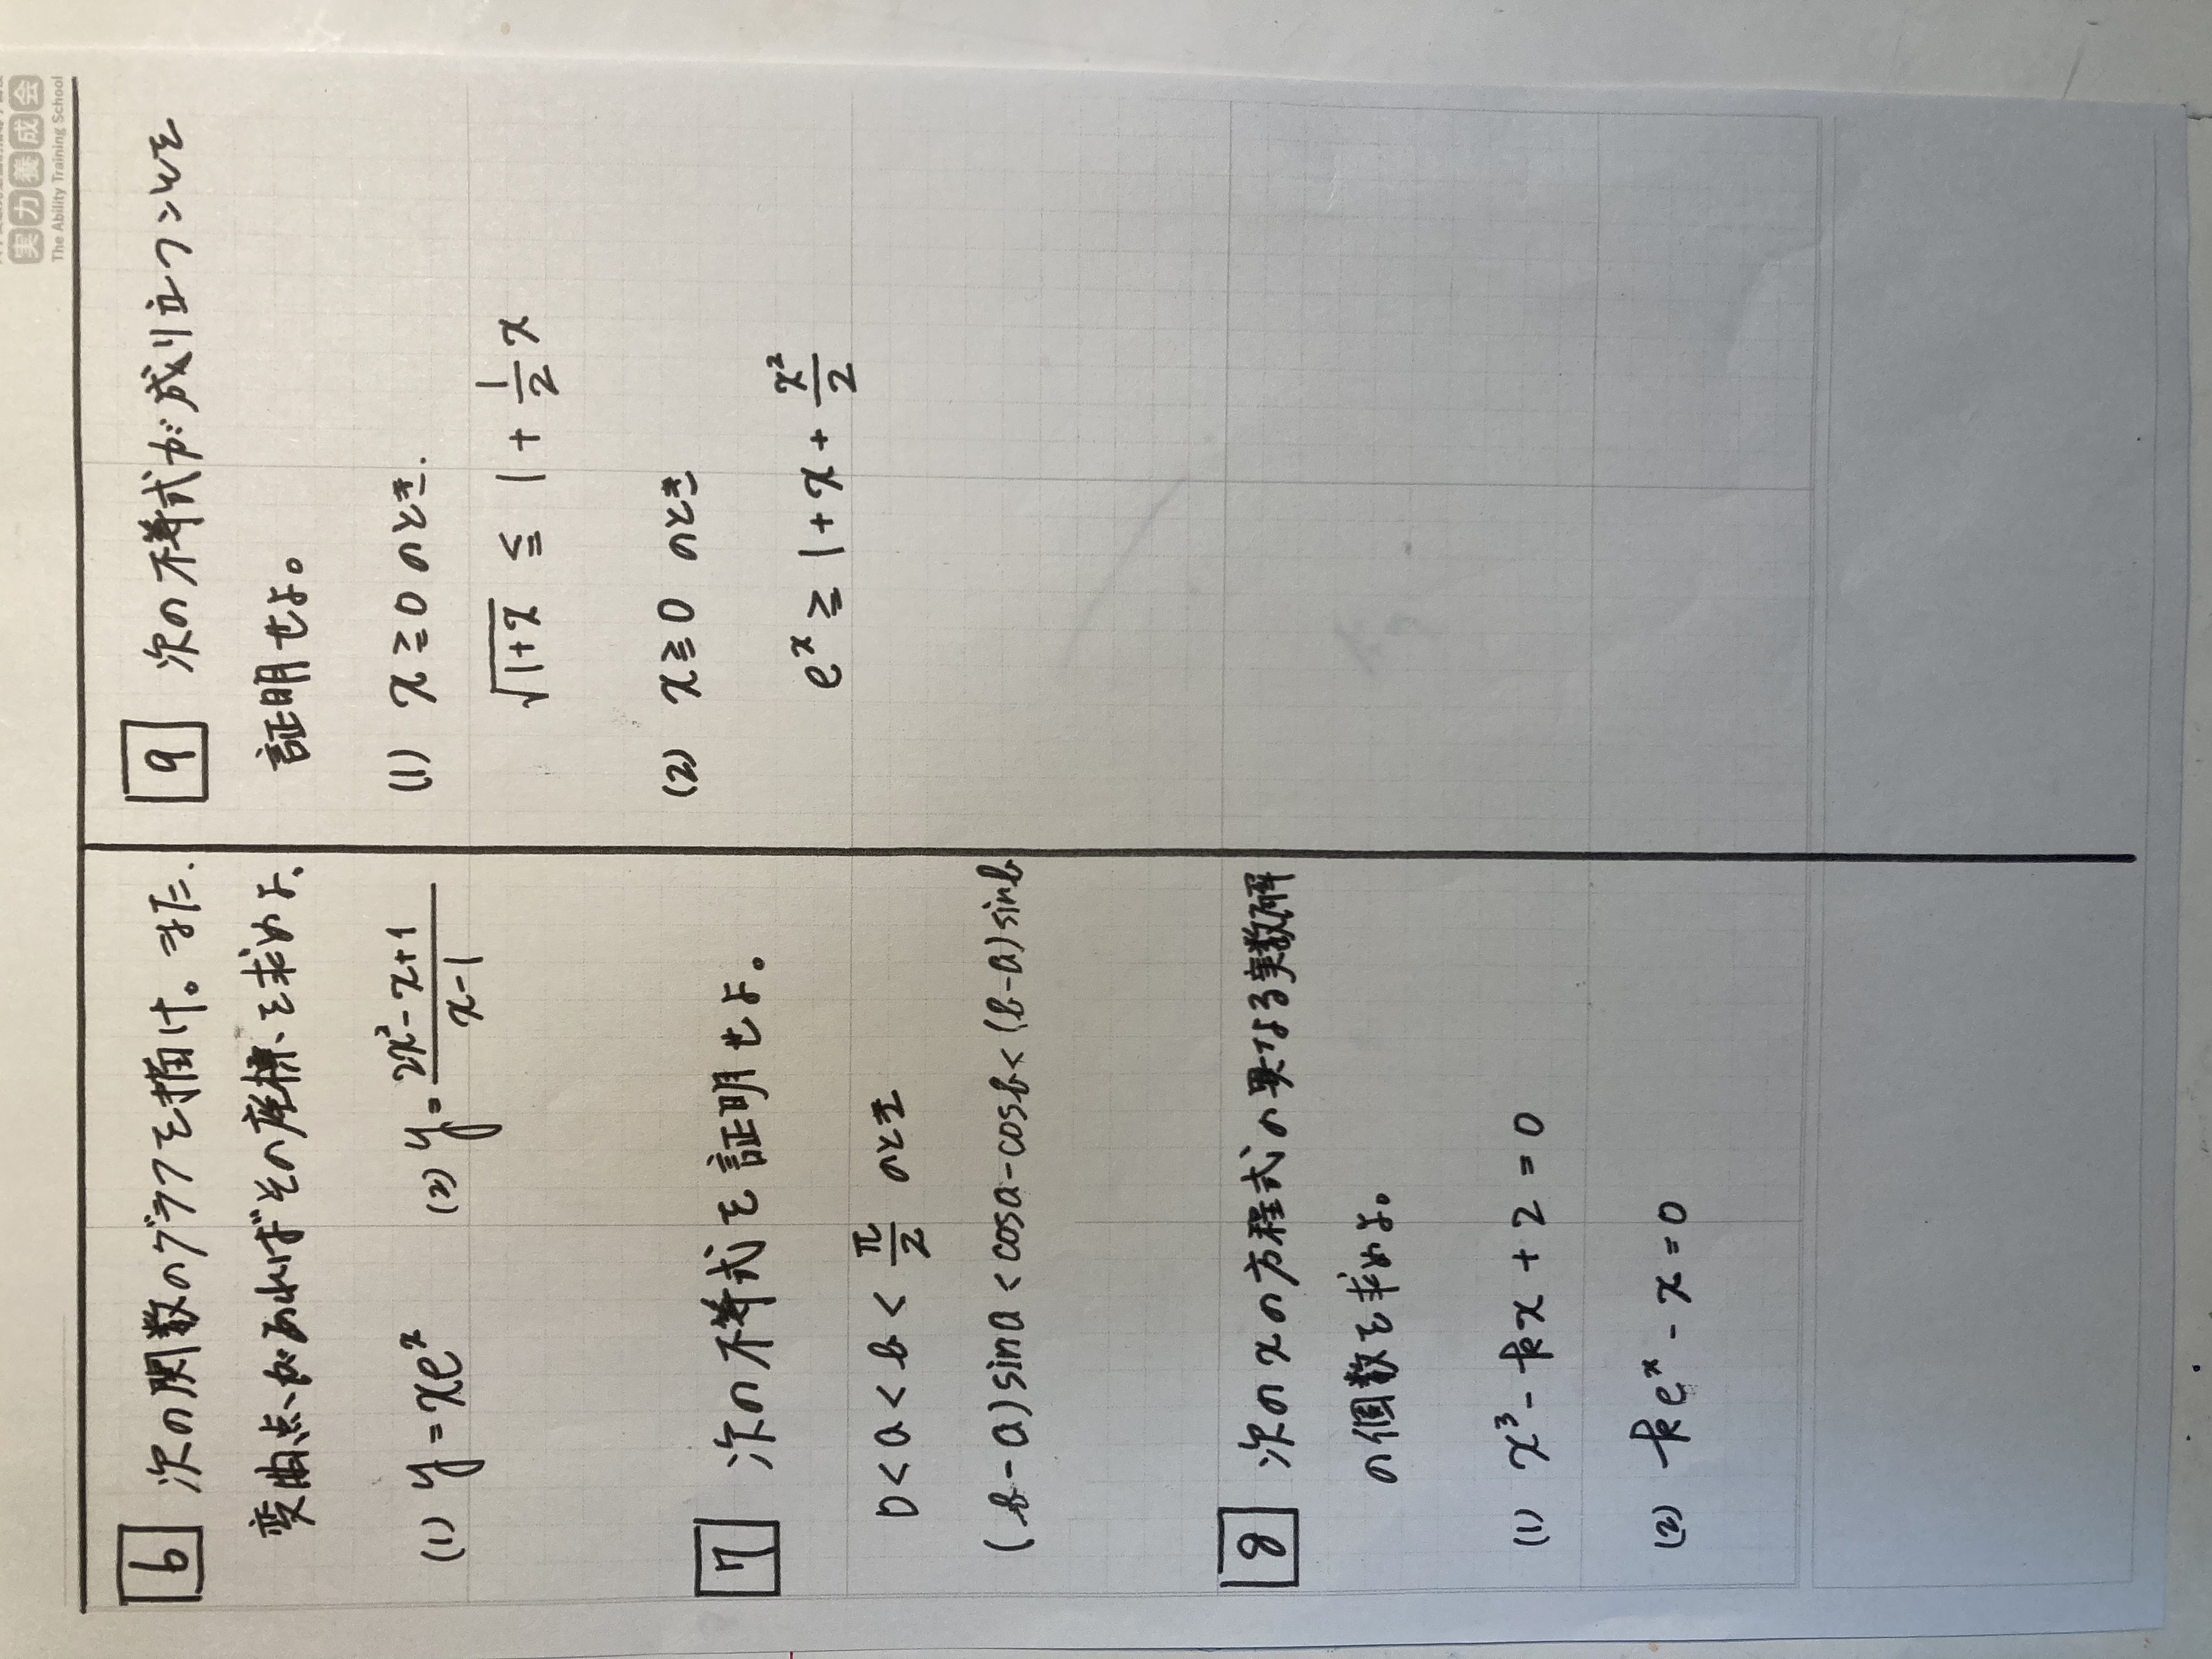 実力養成会
The Ability Training School
6 次の関数のグラフを描け。また、
変曲点があればその座標を求めよ、
(1) y = xe^x (2) y = \frac{2x²-x+1}{x-1}
7 次の不等式を証明せよ。
0 < a < b < \frac{π}{2} のとき
(b-a)sina < cosa-cosb < (b-a)sinb
8 次のxの方程式の異なる実数解
の個数を求めよ。
(1) x³-kx+2=0
(2) ke^x-x=0
9 次の不等式が成り立つことを
証明せよ。
(1) x≧0のとき.
√(1+x) ≦ 1 + \frac{1}{2}x
(2) x≧0 のとき
e^x ≧ 1+x+\frac{x²}{2}